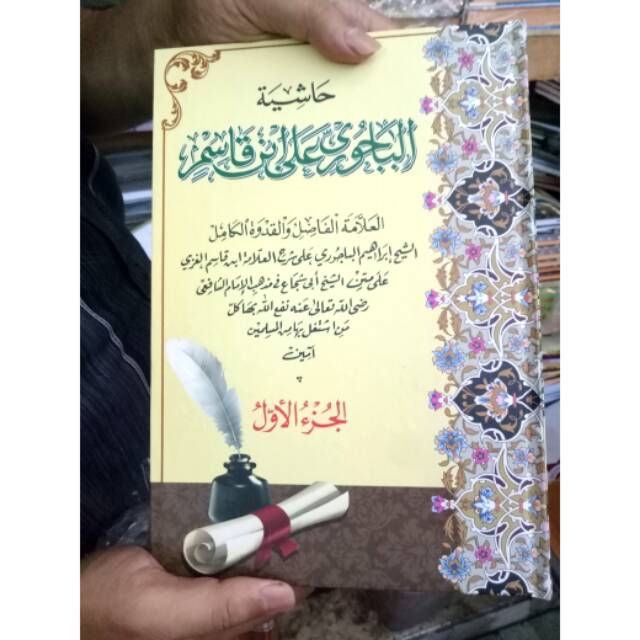 حاشية
الباجوري على ابن قاسم
العلامة الفاضل والقدوة الكامل
الشيخ إبراهيم الباجوري على شرح العلامة ابن قاسم الغزي
على متن الشيخ أبي شجاع في مذهب الإمام الشافعي
رضي الله تعالى عنه نفع الله بها كل
من اشتغل بها من المسلمين
آمين
الجزء الأول